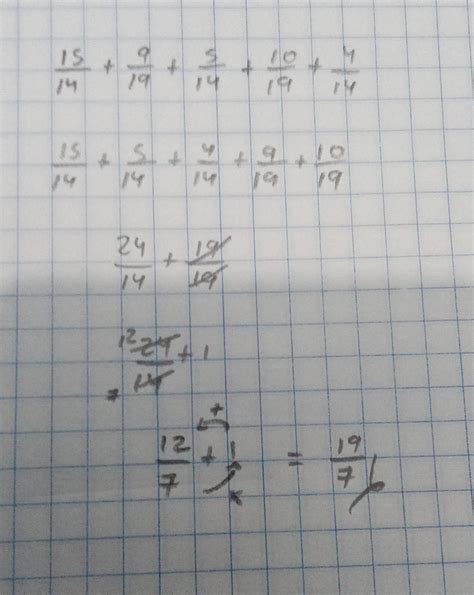 15/14 + 9/19 + 5/14 + 10/19 + 4/14
15/14 + 5/14 + 4/14 + 9/19 + 10/19
24/14 + 19/19
12 24/14 + 1
7
+
12/7 + 1 = 19/7
x